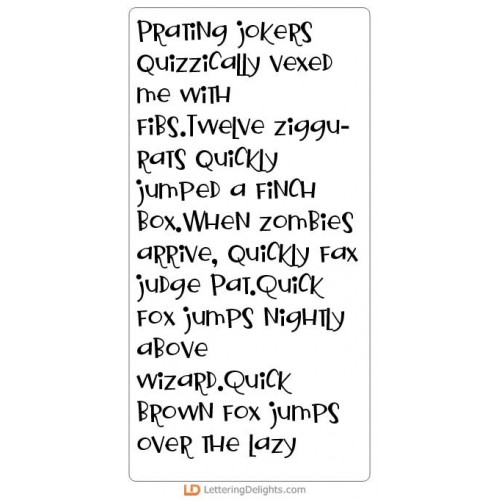 Prating jokers
quizzically vexed
me with
fibs.Twelve ziggu-
rats quickly
jumped a finch
box.When zombies
arrive, quickly fax
judge Pat.Quick
fox jumps nightly
above
wizard.Quick
brown fox jumps
over the lazy
LD LetteringDelights.com